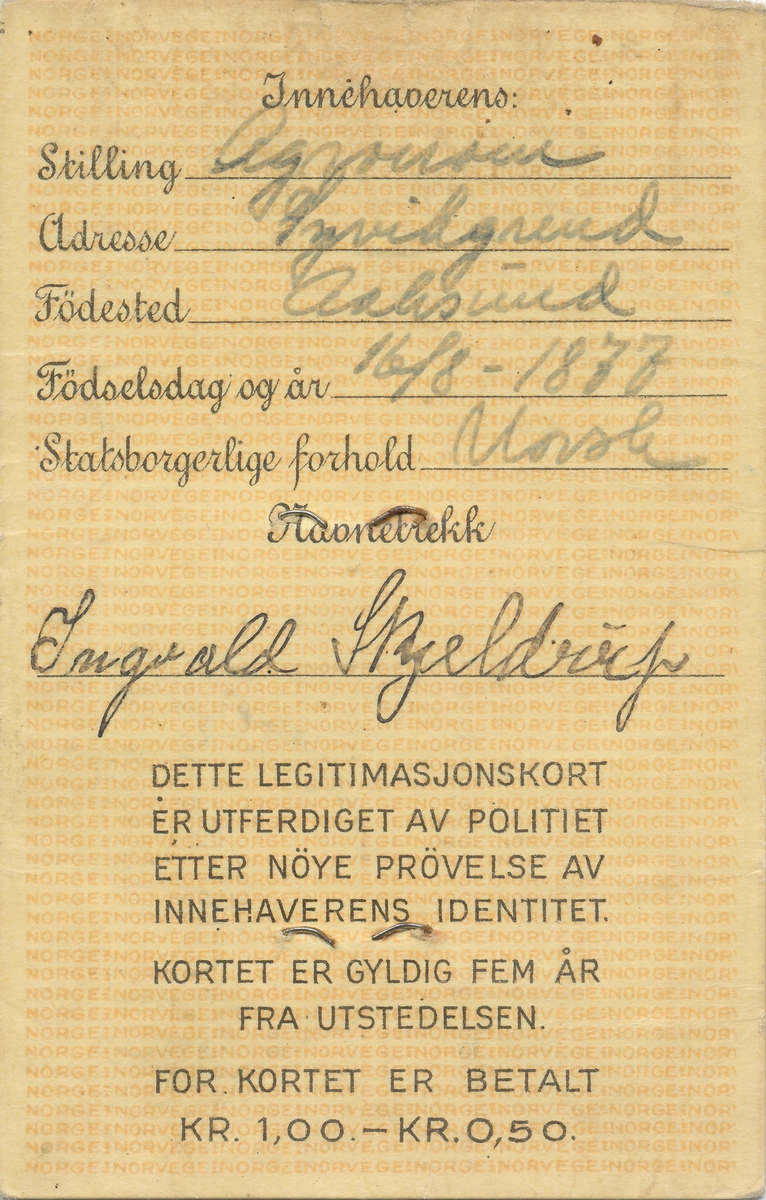 Innehaverens:
Stilling Agronom
Adresse
Födested Aalesund
Födselsdag og år 16/8 - 1877
Statsborgerlige forhold Norsk
Navnetrekk
Ingvald Skjeldrup
DETTE LEGITIMASJONSKORT
ER UTFERDIGET AV POLITIET
ETTER NÖYE PRÖVELSE AV
INNEHAVERENS IDENTITET.
KORTET ER GYLDIG FEM ÅR
FRA UTSTEDELSEN.
FOR KORTET ER BETALT
KR. 1,00.—KR. 0,50.